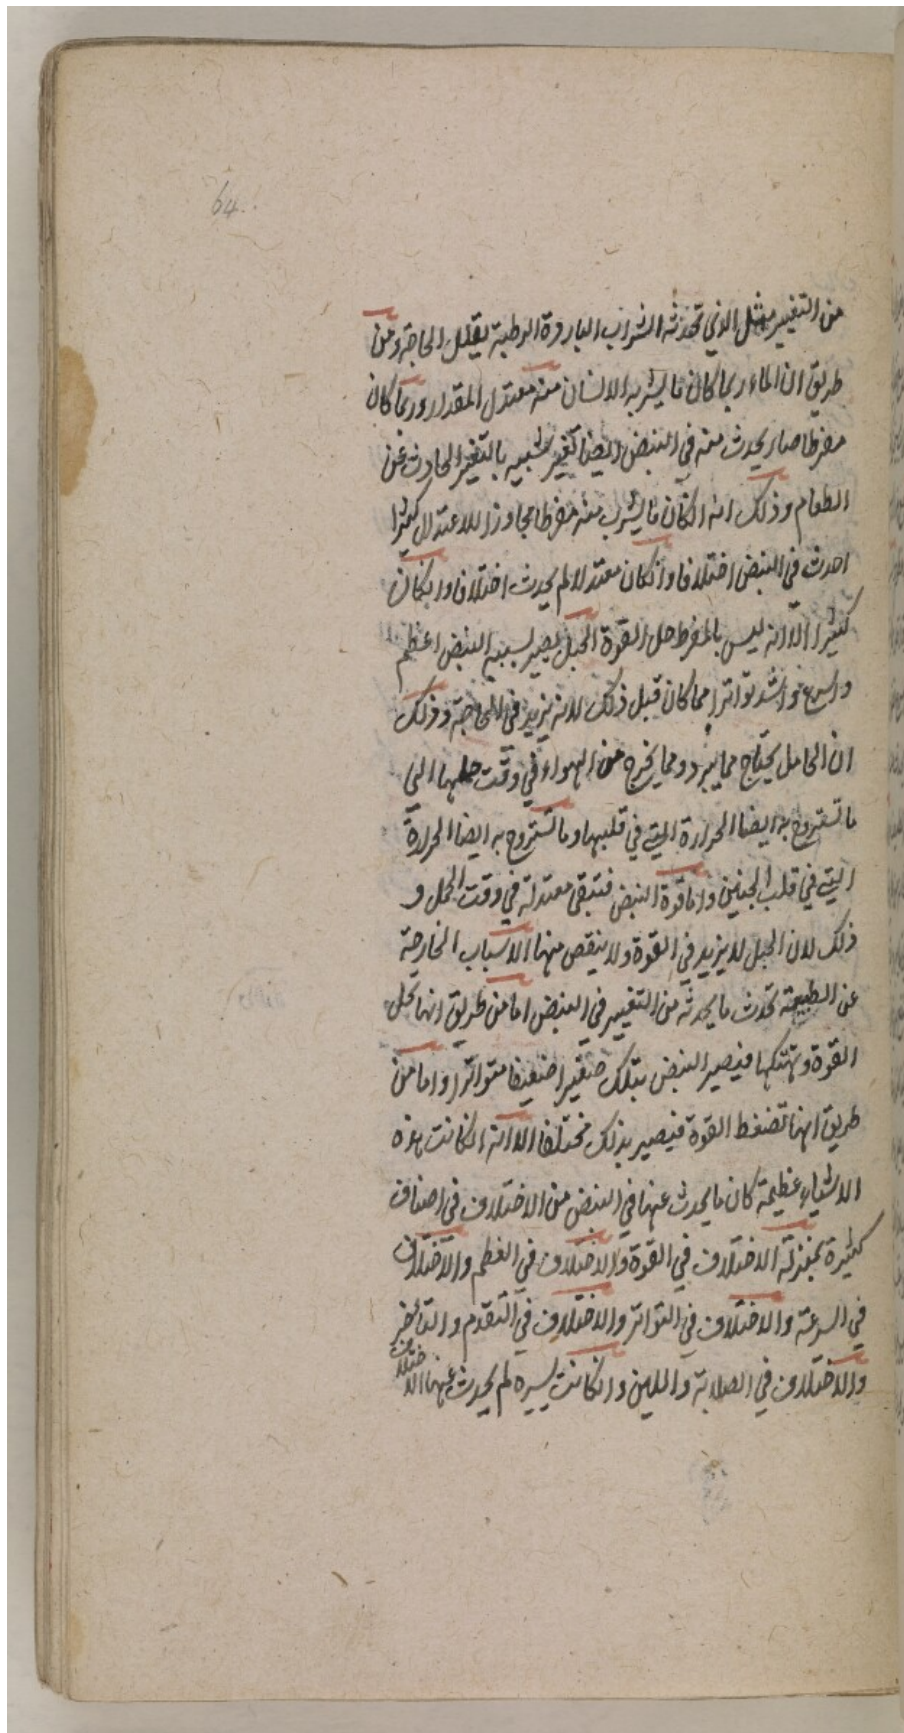 64
من التغيير مثل الذي تحدثه الشراب الباردة الرطبة يقلل الحاجة ومن
طريق ان الماء ربما كان ما يشربه الانسان منه معتدل المقدار وربما كان
مفرطا صار يحدث منه في النبض ايضا تغيير شبيه بالتغير الحادث عن
الطعام وذلك انه ان كان ما يشرب منه مفرطا مجاوزا للاعتدال كثيرا
احدث في النبض اختلافا وان كان معتدلا لم يحدث اختلافا وان كان
كثيرا الا انه ليس بالمفرط حل القوة الحبل يصير بسببه النبض اعظم
واسرع واشد تواترا مما كان قبل ذلك لانه يزيد في الحاجة وذلك
ان الحامل يحتاج مما يبرد ومما يخرج من الهواء في وقت حملها الي
ما تستروح به ايضا الحرارة التي في قلبها وما تستروح به ايضا الحرارة
التي في قلب الجنين واما قوة النبض فتبقى معتدلة في وقت الحمل و
ذلك لان الحبل لا يزيد في القوة ولا ينقص منها الاسباب الخارجة
عن الطبيعة تحدث ما يحدثه من التغيير في النبض اما من طريق انها تحل
القوة وتنهكها فيصير النبض بتلك صغيرا ضعيفا متواترا واما من
طريق انها تضغط القوة فيصير بذلك مختلفا الا انه ان كانت هذه
الاشياء عظيمة كان ما يحدث عنها في النبض من الاختلاف في اصناف
كثيرة بمنزلة الاختلاف في القوة والاختلاف في العظم والاختلاف
في السرعة والاختلاف في التواتر والاختلاف في التقدم والتاخر
والاختلاف في الصلابة واللين وان كانت يسيره لم يحدث عنها الاختلاف